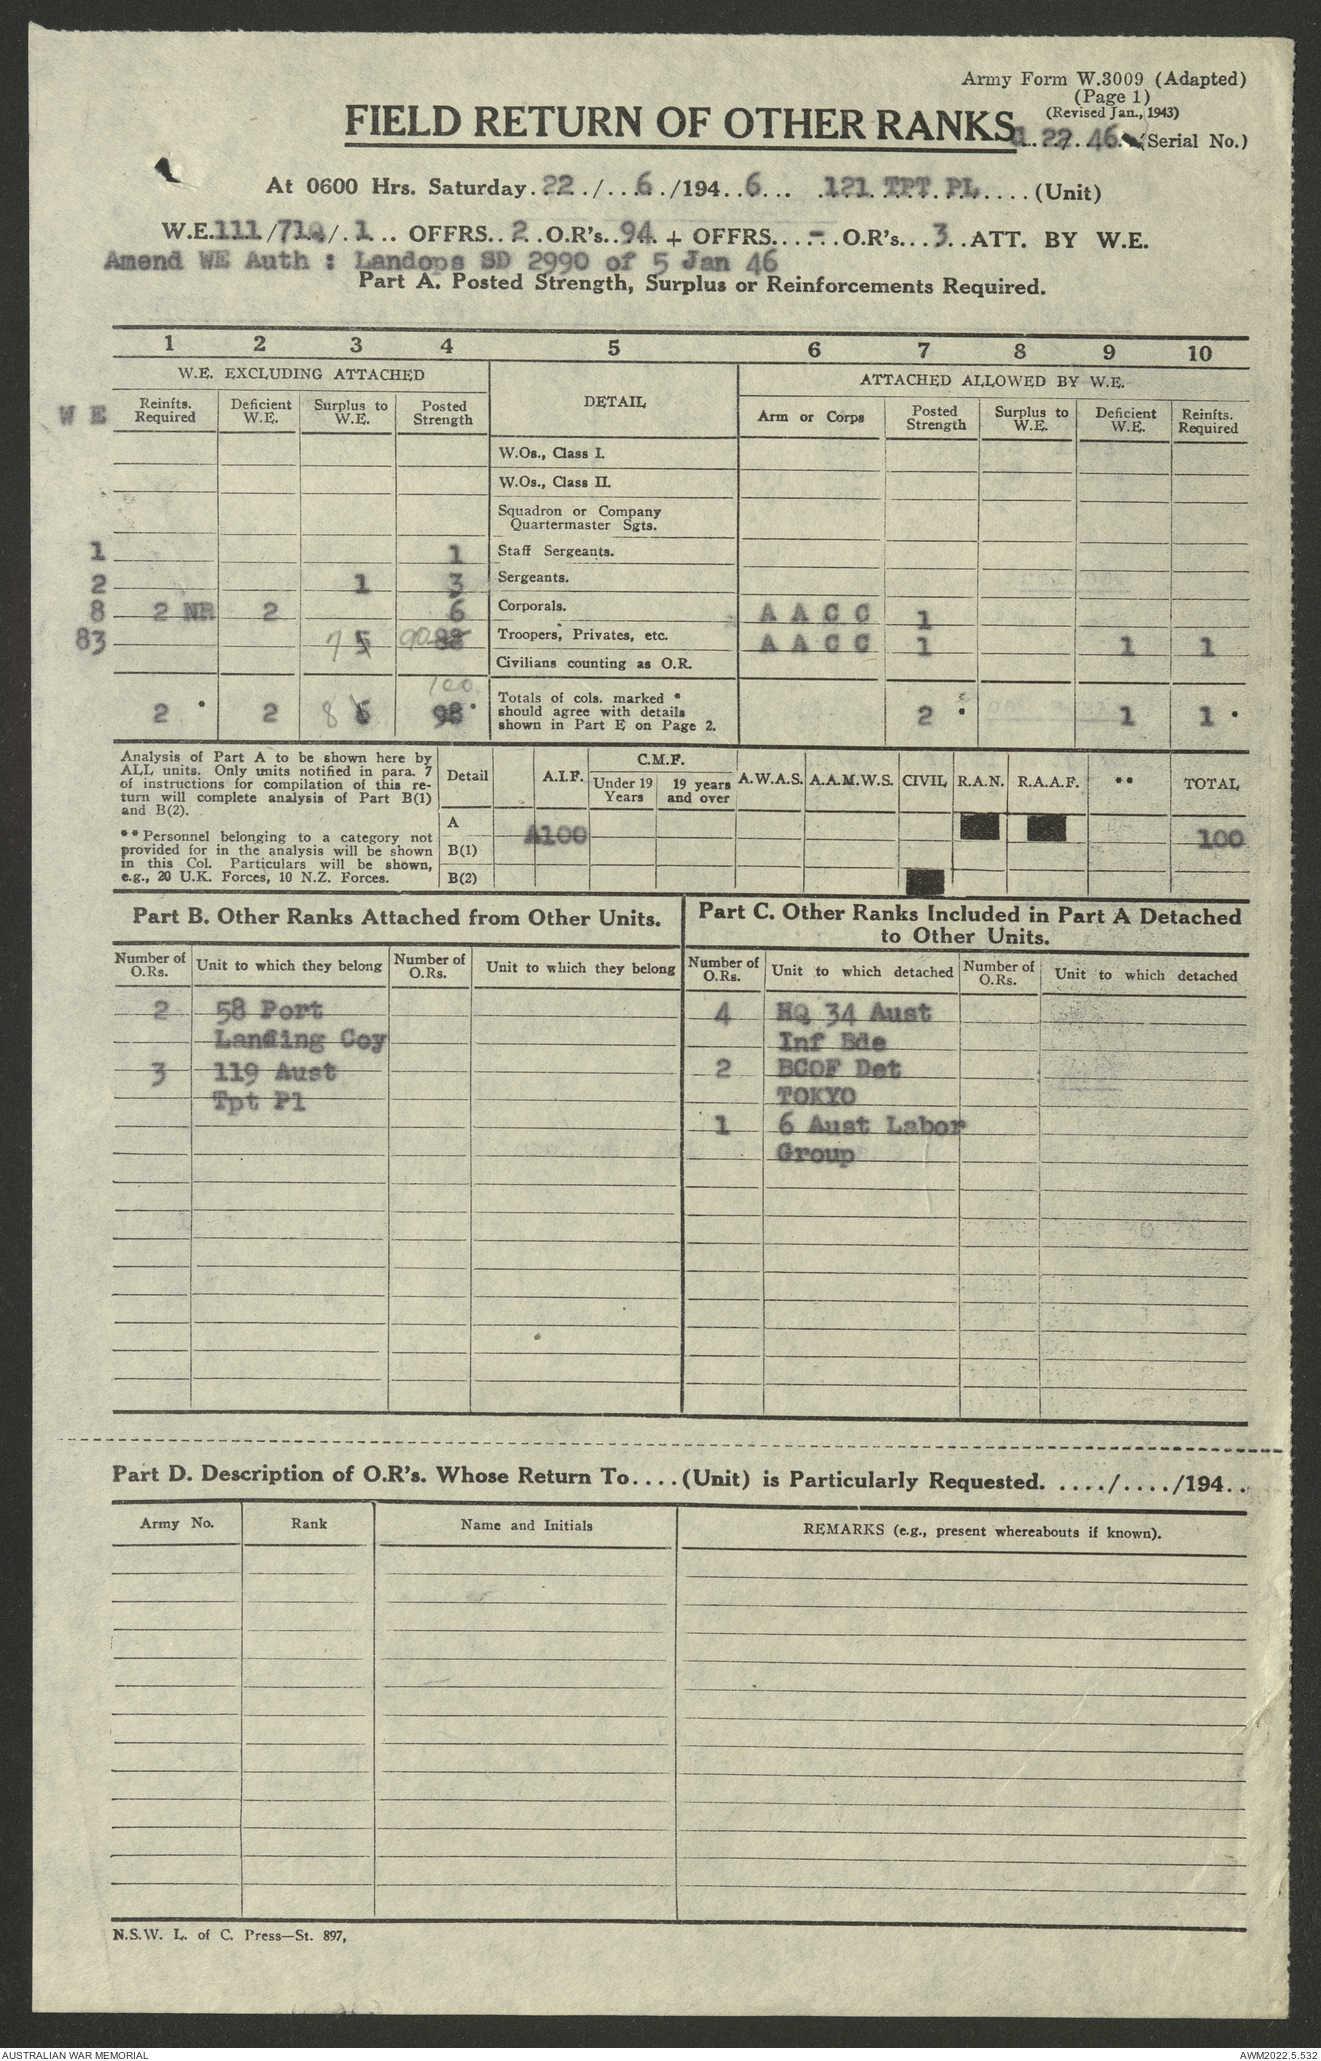 Army Form W.3009 (Adapted)
(Page 1)
(Revised Jan., 1943)
FIELD RETURN OF OTHER RANKS
22. 46. (Serial No.)
At 0600 Hrs. Saturday. 22 ./... 6 ./194.. 6... .121 TPT PL....(Unit)
W.E. 111/71Q/. 1... OFFRS.. 2..O.R's.. 94.. + OFFRS....-. O.R's... 3..ATT. BY W.E.
Amend WE Auth : Landops SD 2990 of 5 Jan 46
Part A. Posted Strength, Surplus or Reinforcements Required.
1 2 3 4 5 6 7 8 9 10
W.E. EXCLUDING ATTACHED DETAIL ATTACHED ALLOWED BY W.E.
W E Reinfts. Required Deficient W.E. Surplus to W.E. Posted Strength Arm or Corps Posted Strength Surplus to W.E. Deficient W.E. Reinfts. Required
W.Os., Class I.
W.Os., Class II.
Squadron or Company
Quartermaster Sgts.
1 1 Staff Sergeants.
2 1 3 Sergeants.
8 2 NR 2 6 Corporals. A A C C 1
83 7 5 90 88 Troopers, Privates, etc. A A C C 1 1 1
Civilians counting as O.R.
100.
2 * 2 8 6 98 * Totals of cols. marked *
should agree with details
shown in Part E on Page 2. 2 * 1 1 *
Analysis of Part A to be shown here by
ALL units. Only units notified in para. 7
of instructions for compilation of this re-
turn will complete analysis of Part B(1)
and B(2).
** Personnel belonging to a category not
provided for in the analysis will be shown
in this Col. Particulars will be shown,
e.g., 20 U.K. Forces, 10 N.Z. Forces.
Detail A.I.F. C.M.F. A.W.A.S. A.A.M.W.S. CIVIL R.A.N. R.A.A.F. ** TOTAL
Under 19 Years 19 years and over
A A100 100
B(1)
B(2)
Part B. Other Ranks Attached from Other Units.
Number of O.Rs. Unit to which they belong Number of O.Rs. Unit to which they belong
2 58 Port
Landing Coy
3 119 Aust
Tpt Pl
Part C. Other Ranks Included in Part A Detached
to Other Units.
Number of O.Rs. Unit to which detached Number of O.Rs. Unit to which detached
4 HQ 34 Aust
Inf Bde
2 BCOF Det
TOKYO
1 6 Aust Labor
Group
Part D. Description of O.R's. Whose Return To....(Unit) is Particularly Requested. ..../..../194..
Army No. Rank Name and Initials REMARKS (e.g., present whereabouts if known).
N.S.W. L. of C. Press—St. 897,
AUSTRALIAN WAR MEMORIAL AWM2022.5.532